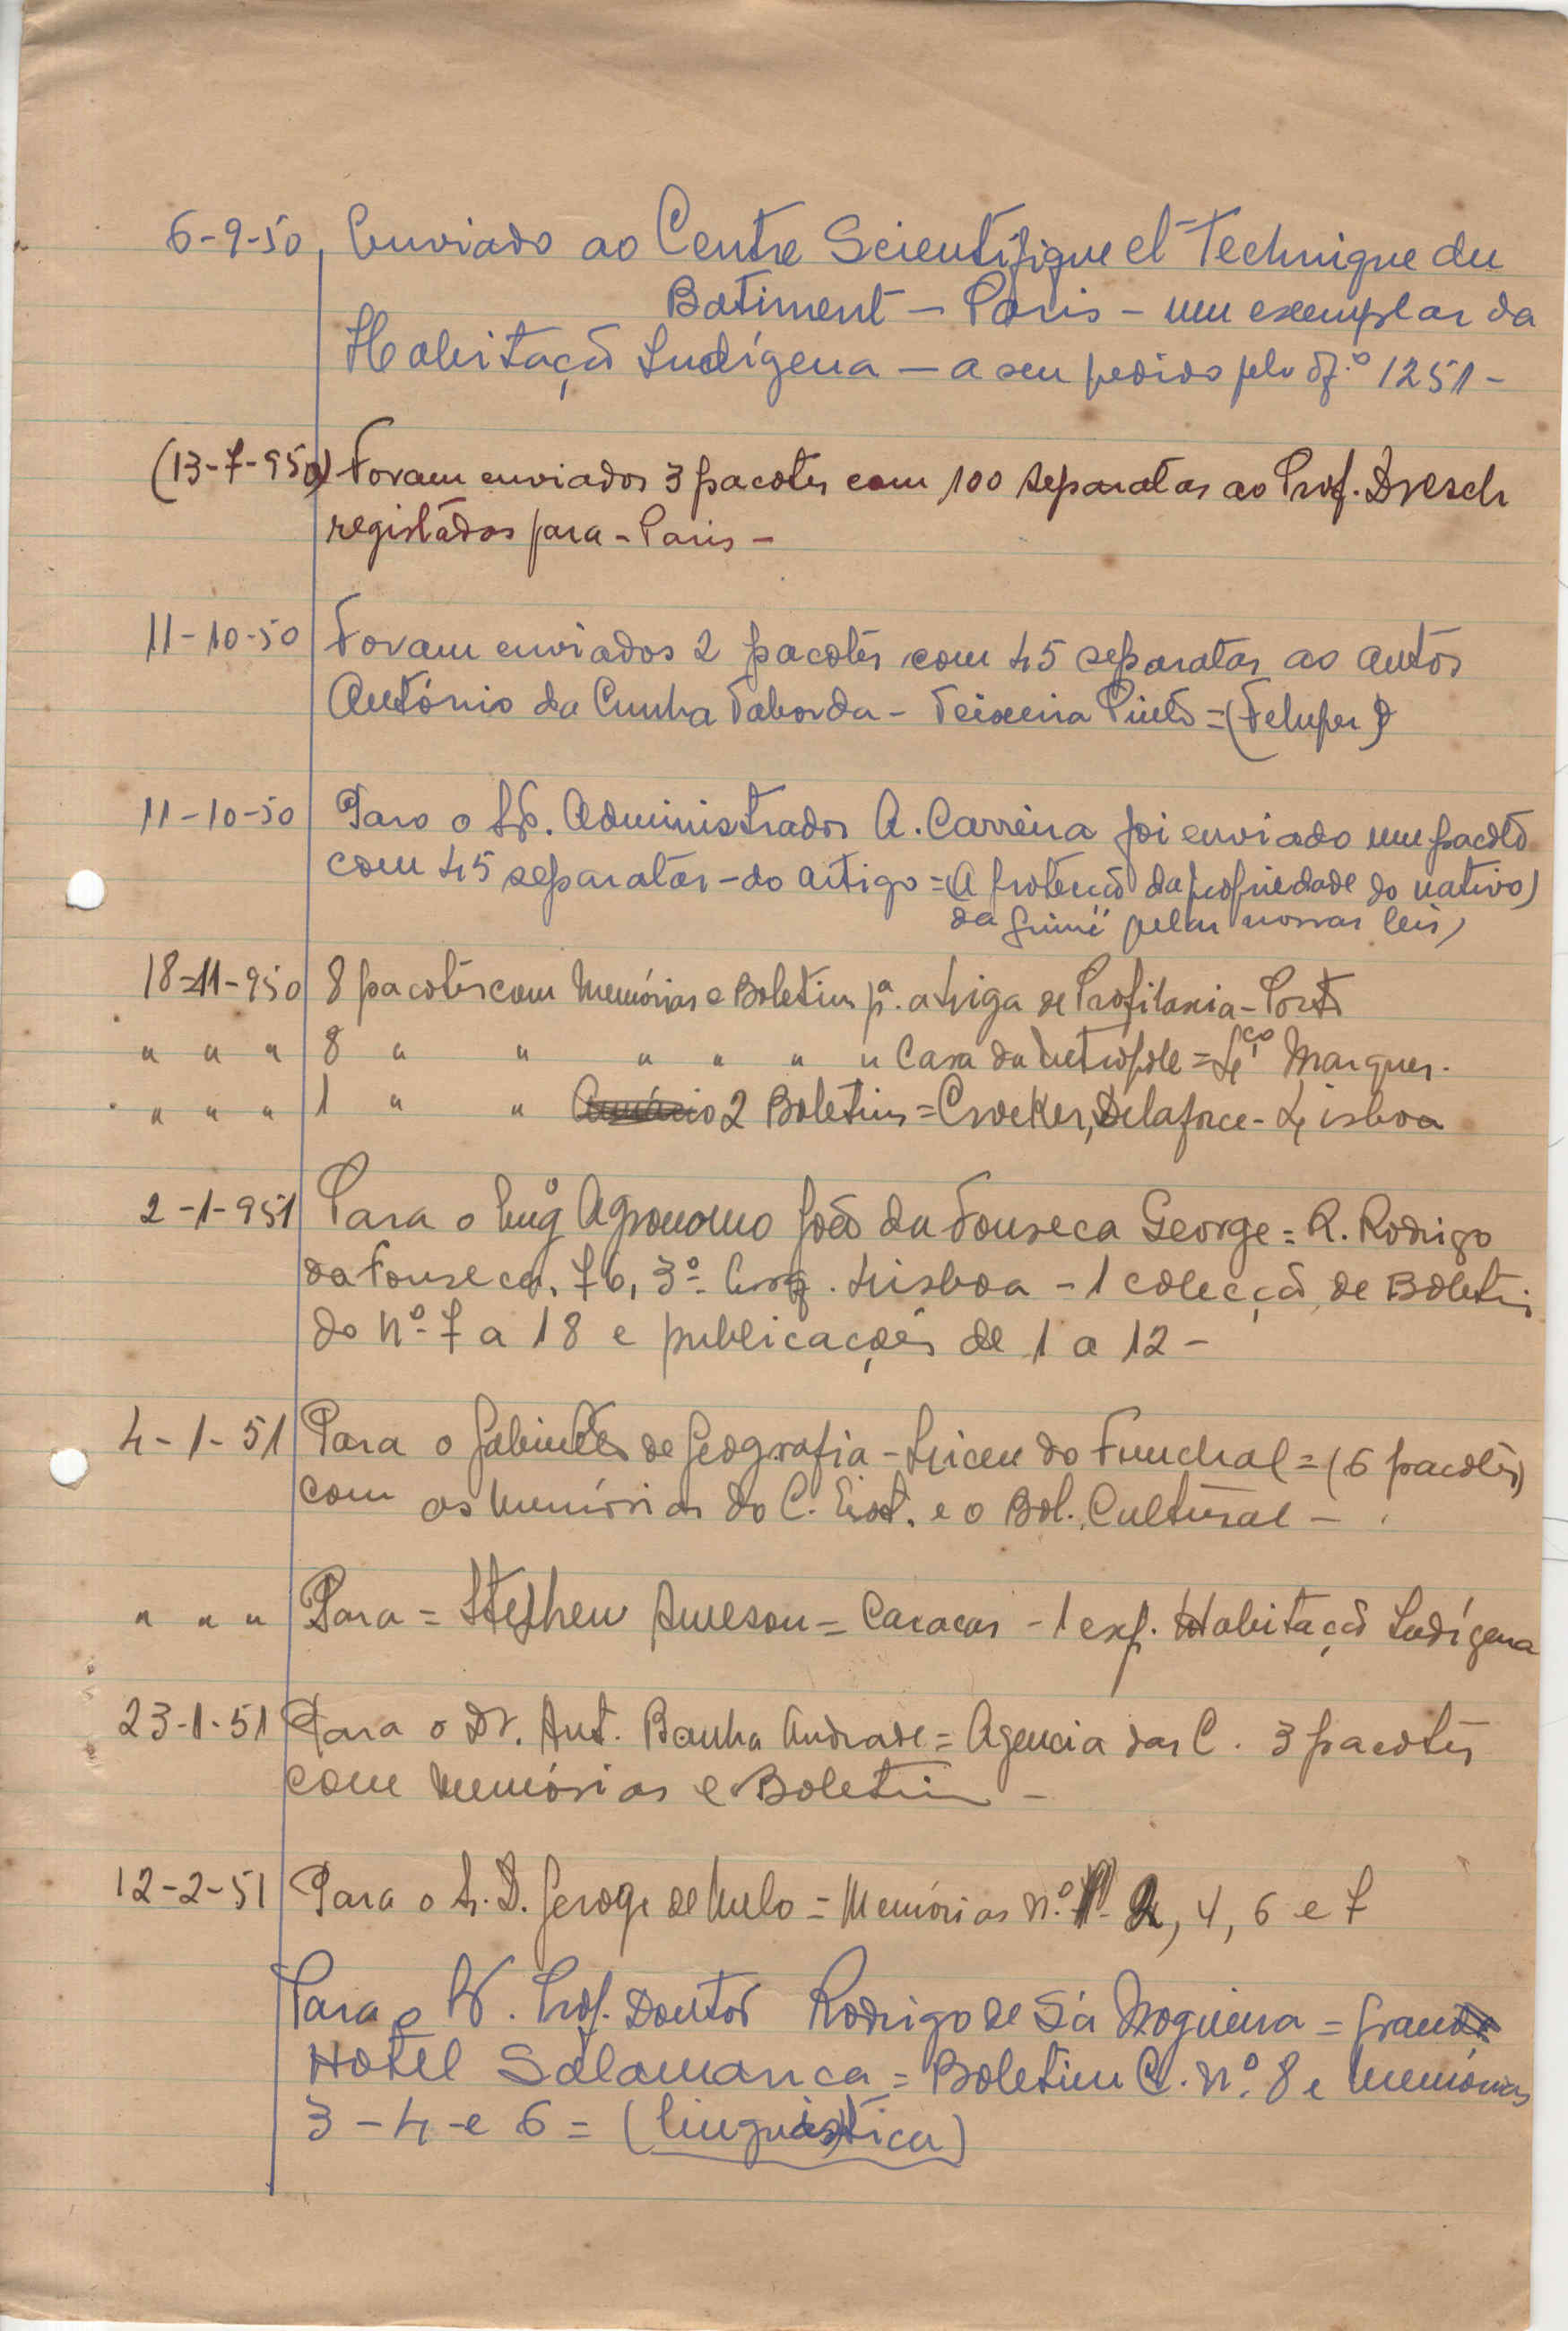 6-9-50 Enviado ao Centre Scientifique et Technique du
Batiment – Paris – um exemplar da
Habitação Indígena – a seu pedido pelo of.º 1251 –
(13-7-950) Foram enviados 3 pacotes com 100 separatas ao Prof. Dresch
registados para - Paris –
11-10-50 Foram enviados 2 pacotes com 45 separatas ao autor
António da Cunha Taborda - Teixeira Pinto = (Felupes)
11-10-50 Para o Sr. Administrador A. Carreira foi enviado um pacote
com 45 separatas - do artigo = (A protecção da propriedade do nativo)
da Guiné pelas nossas leis)
18-11-950 8 pacotes com Memórias e Boletins pª. a Liga de Profilaxia - Porto
" " " 8 " " " " " " Casa da Metrópole = Lço Marques.
" " " 1 " " 2 Boletins = Crocker, Delaforce - Lisboa
2-1-951 Para o Engº Agronomo João da Fonseca George = R. Rodrigo
da Fonseca, 76, 3º Esq. Lisboa - 1 colecção de Boletins
do nº 7 a 18 e publicações de 1 a 12 –
4-1-51 Para o Gabinete de Geografia - Liceu do Funchal = (6 pacotes)
com as Memórias do C. Est. e o Bol. Cultural –
" " " Para = Stephen = Caracas - 1 exp. Habitação Indígena
23-1-51 Para o Dr. Ant. Banha Andrade = Agencia das C. 3 pacotes
com Memórias e Boletim –
12-2-51 Para o Sr. D. de Melo = Memórias n.º 2, 4, 6 e 7
Para o Sr. Prof. Doutor Rodrigo de Sá Nogueira = Grande
Hotel Salamanca = Boletim C. n.º 8 e Memórias
3 - 4 - e 6 = (linguística)